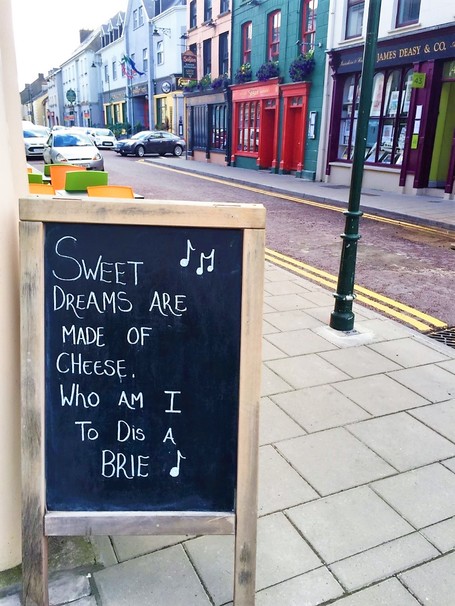 SWEET
DREAMS ARE
MADE OF
CHEESE.
WHO AM I
TO DIS A
BRIE
JAMES DEASY & CO.